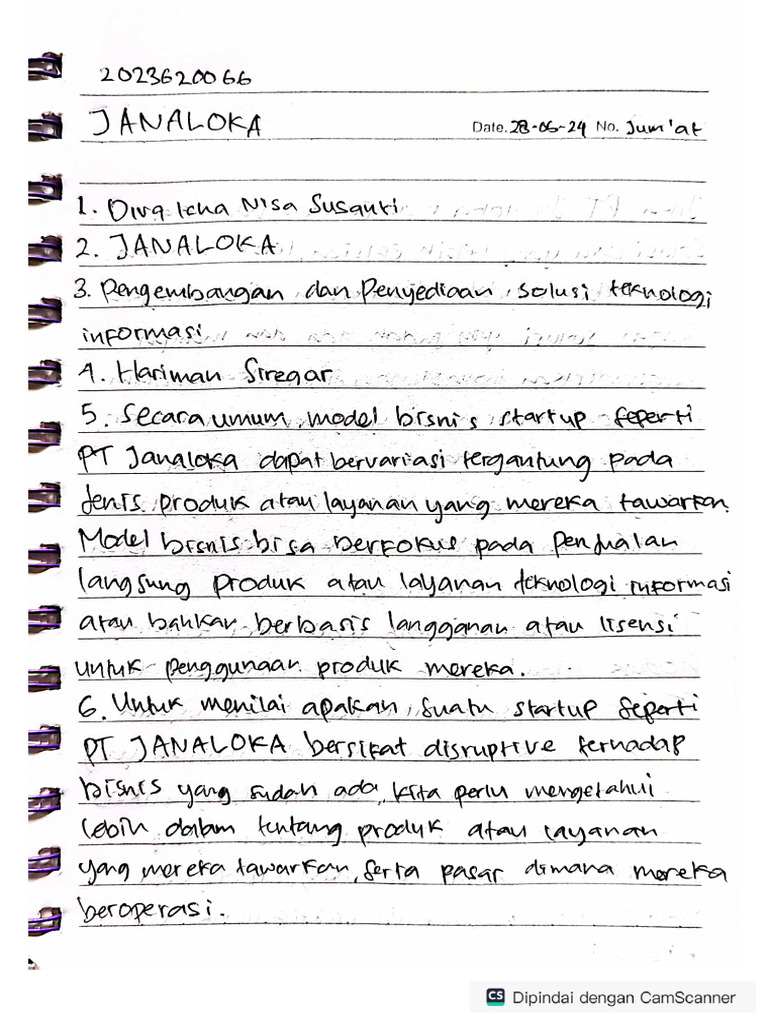 2023620066
JANALOKA Date. 28-06-24 No. Jum'at
1. Diva Icha Nisa Susanti
2. JANALOKA
3. Pengembangan dan Penyediaan solusi teknologi
informasi
4. Hariman Siregar
5. Secara umum, model bisnis startup seperti
PT Janaloka dapat bervariasi tergantung pada
Jenis produk atau layanan yang mereka tawarkan.
Model bisnis bisa berfokus pada penjualan
langsung produk atau layanan teknologi informasi
atau bahkan berbasis langganan atau lisensi
untuk penggunaan produk mereka.
6. Untuk menilai apakah, suatu startup seperti
PT JANALOKA bersifat disruptive terhadap
bisnis yang sudah ada, kita perlu mengetahui
lebih dalam tentang produk atau layanan
yang mereka tawarkan, serta pasar dimana mereka
beroperasi.
CS Dipindai dengan CamScanner